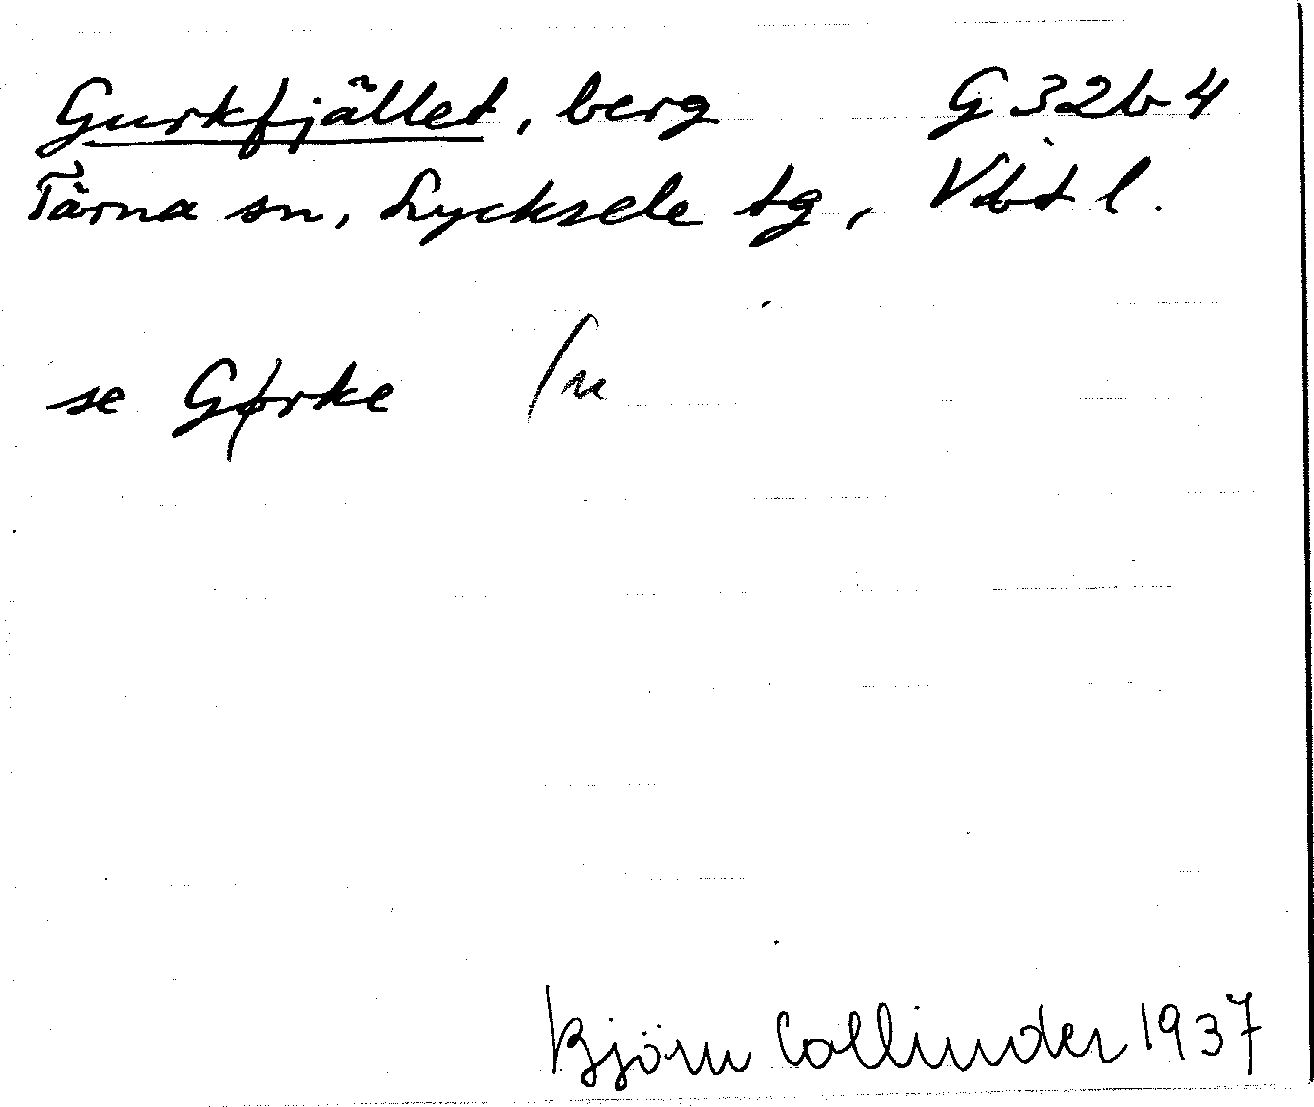 Gurkfjället, berg G 32b 4
Tärna sn, Lycksele tg, Vbt l.
se Gørke
Björn Collinder 1937